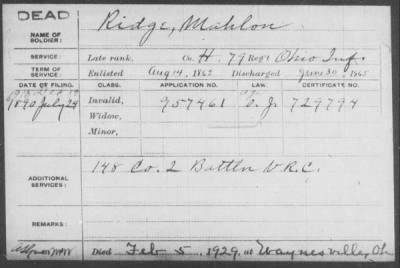 DEAD
NAME OF SOLDIER: Ridge, Mahlon
SERVICE: Late rank, Co. H, 79 Reg't Ohio Inf.
TERM OF SERVICE: Enlisted Aug 14, 1862 Discharged June 30, 1865
DATE OF FILING. CLASS. APPLICATION NO. LAW. CERTIFICATE NO.
1890 July 24 Invalid, 957461 729794
Widow,
Minor,
ADDITIONAL SERVICES: 148 Co. 2 Battln V.R.C.
REMARKS:
Died Feb 5, 1929, at Waynesville, Oh